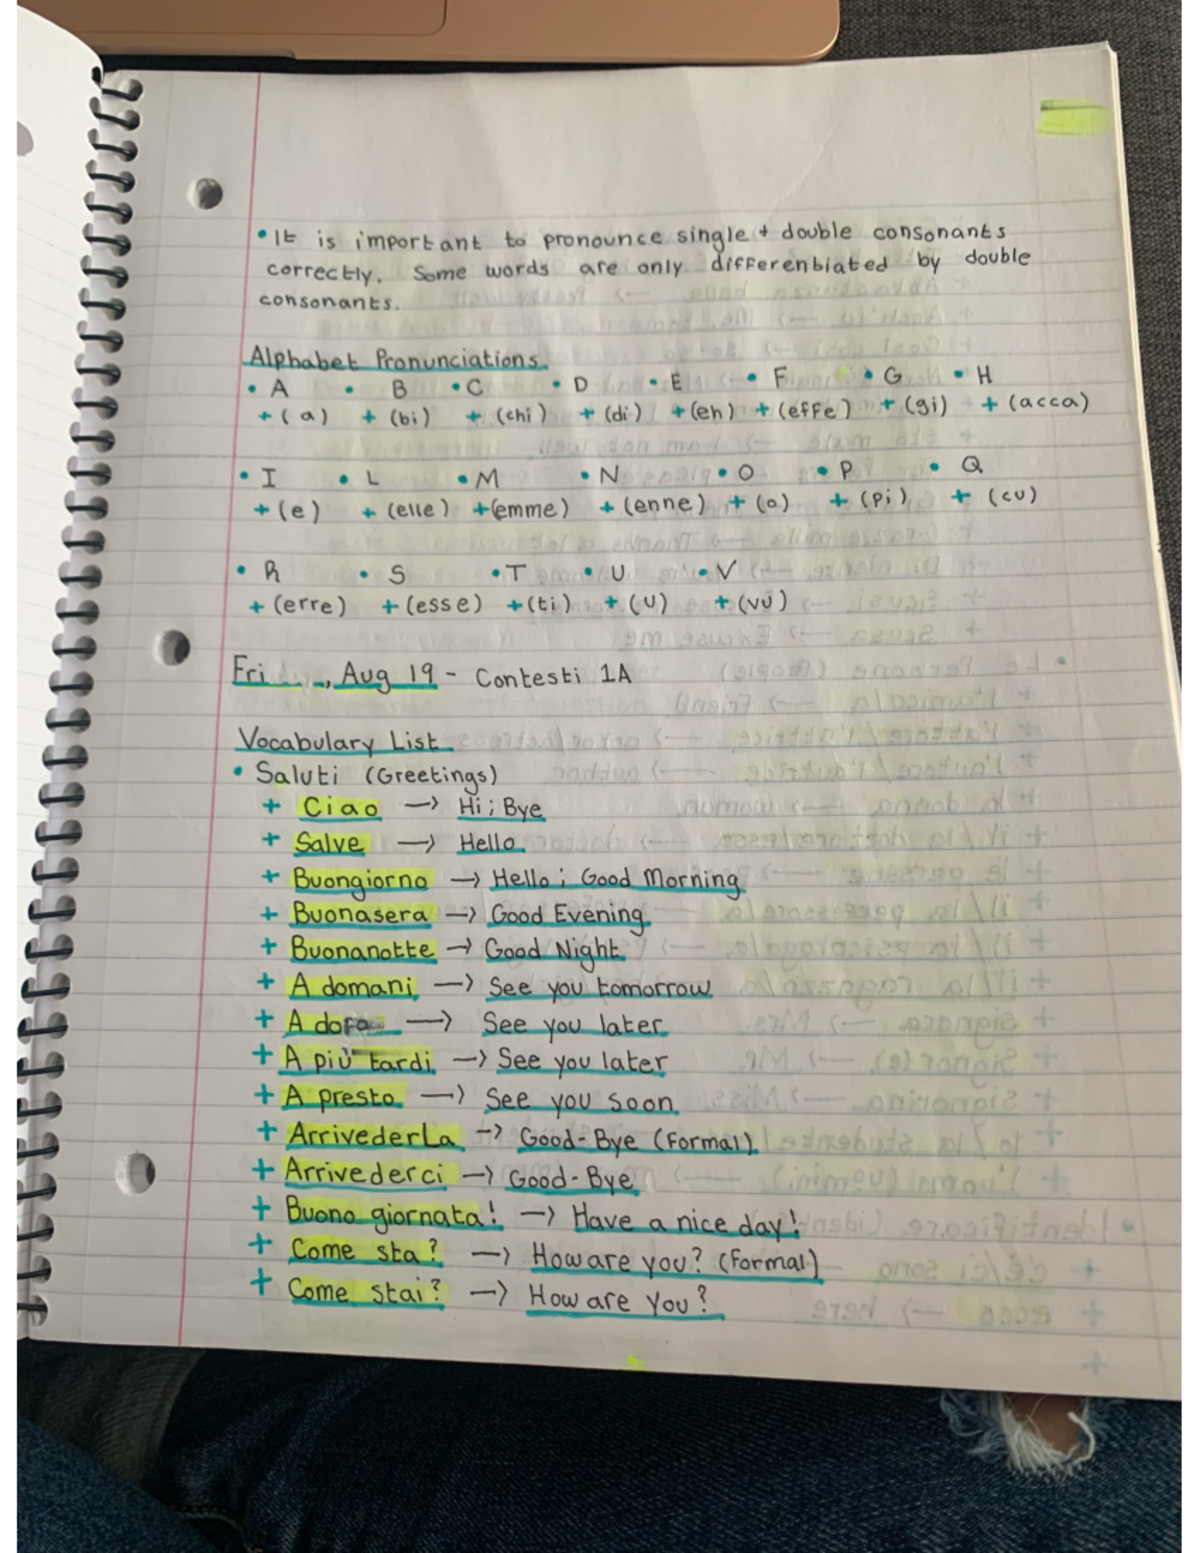 • It is important to pronounce single + double consonants
correctly. Some words are only differenbiated by double
consonants.
Alphabet Pronunciations
• A • B • C • D • E • F • G • H
+ (a) + (bi) + (chi) + (di) + (eh) + (effe) + (gi) + (acca)
• I • L • M • N • O • P • Q
+ (e) + (elle) + (emme) + (enne) + (o) + (pi) + (cu)
• R • S • T • U • V
+ (erre) + (esse) + (ti) + (u) + (vu)
Fri, Aug 19 - Contesti 1A
Vocabulary List
• Saluti (Greetings)
+ Ciao → Hi; Bye
+ Salve → Hello
+ Buongiorno → Hello; Good Morning
+ Buonasera → Good Evening
+ Buonanotte → Good Night
+ A domani → See you tomorrow
+ A → See you later
+ A più tardi → See you later
+ A presto → See you soon
+ ArrivederLa → Good-Bye (Formal)
+ Arrivederci → Good-Bye
+ Buona giornata! → Have a nice day!
+ Come sta? → How are you? (Formal)
+ Come stai? → How are you?